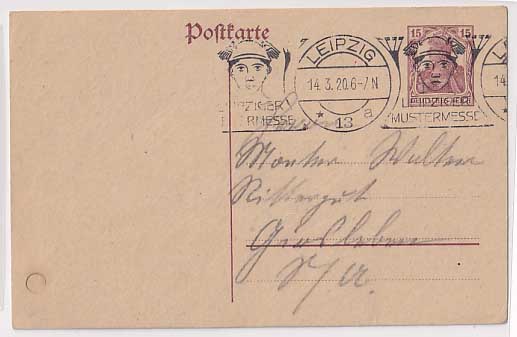 Postkarte
15 15
LEIPZIG
14.3.20.6-7N
* 13 a
LEIPZIGER
MUSTERMESSE
MUSTERMESSE
DEUTSCHES REICH
14
Monteur Walter
Rittergut
S/A.